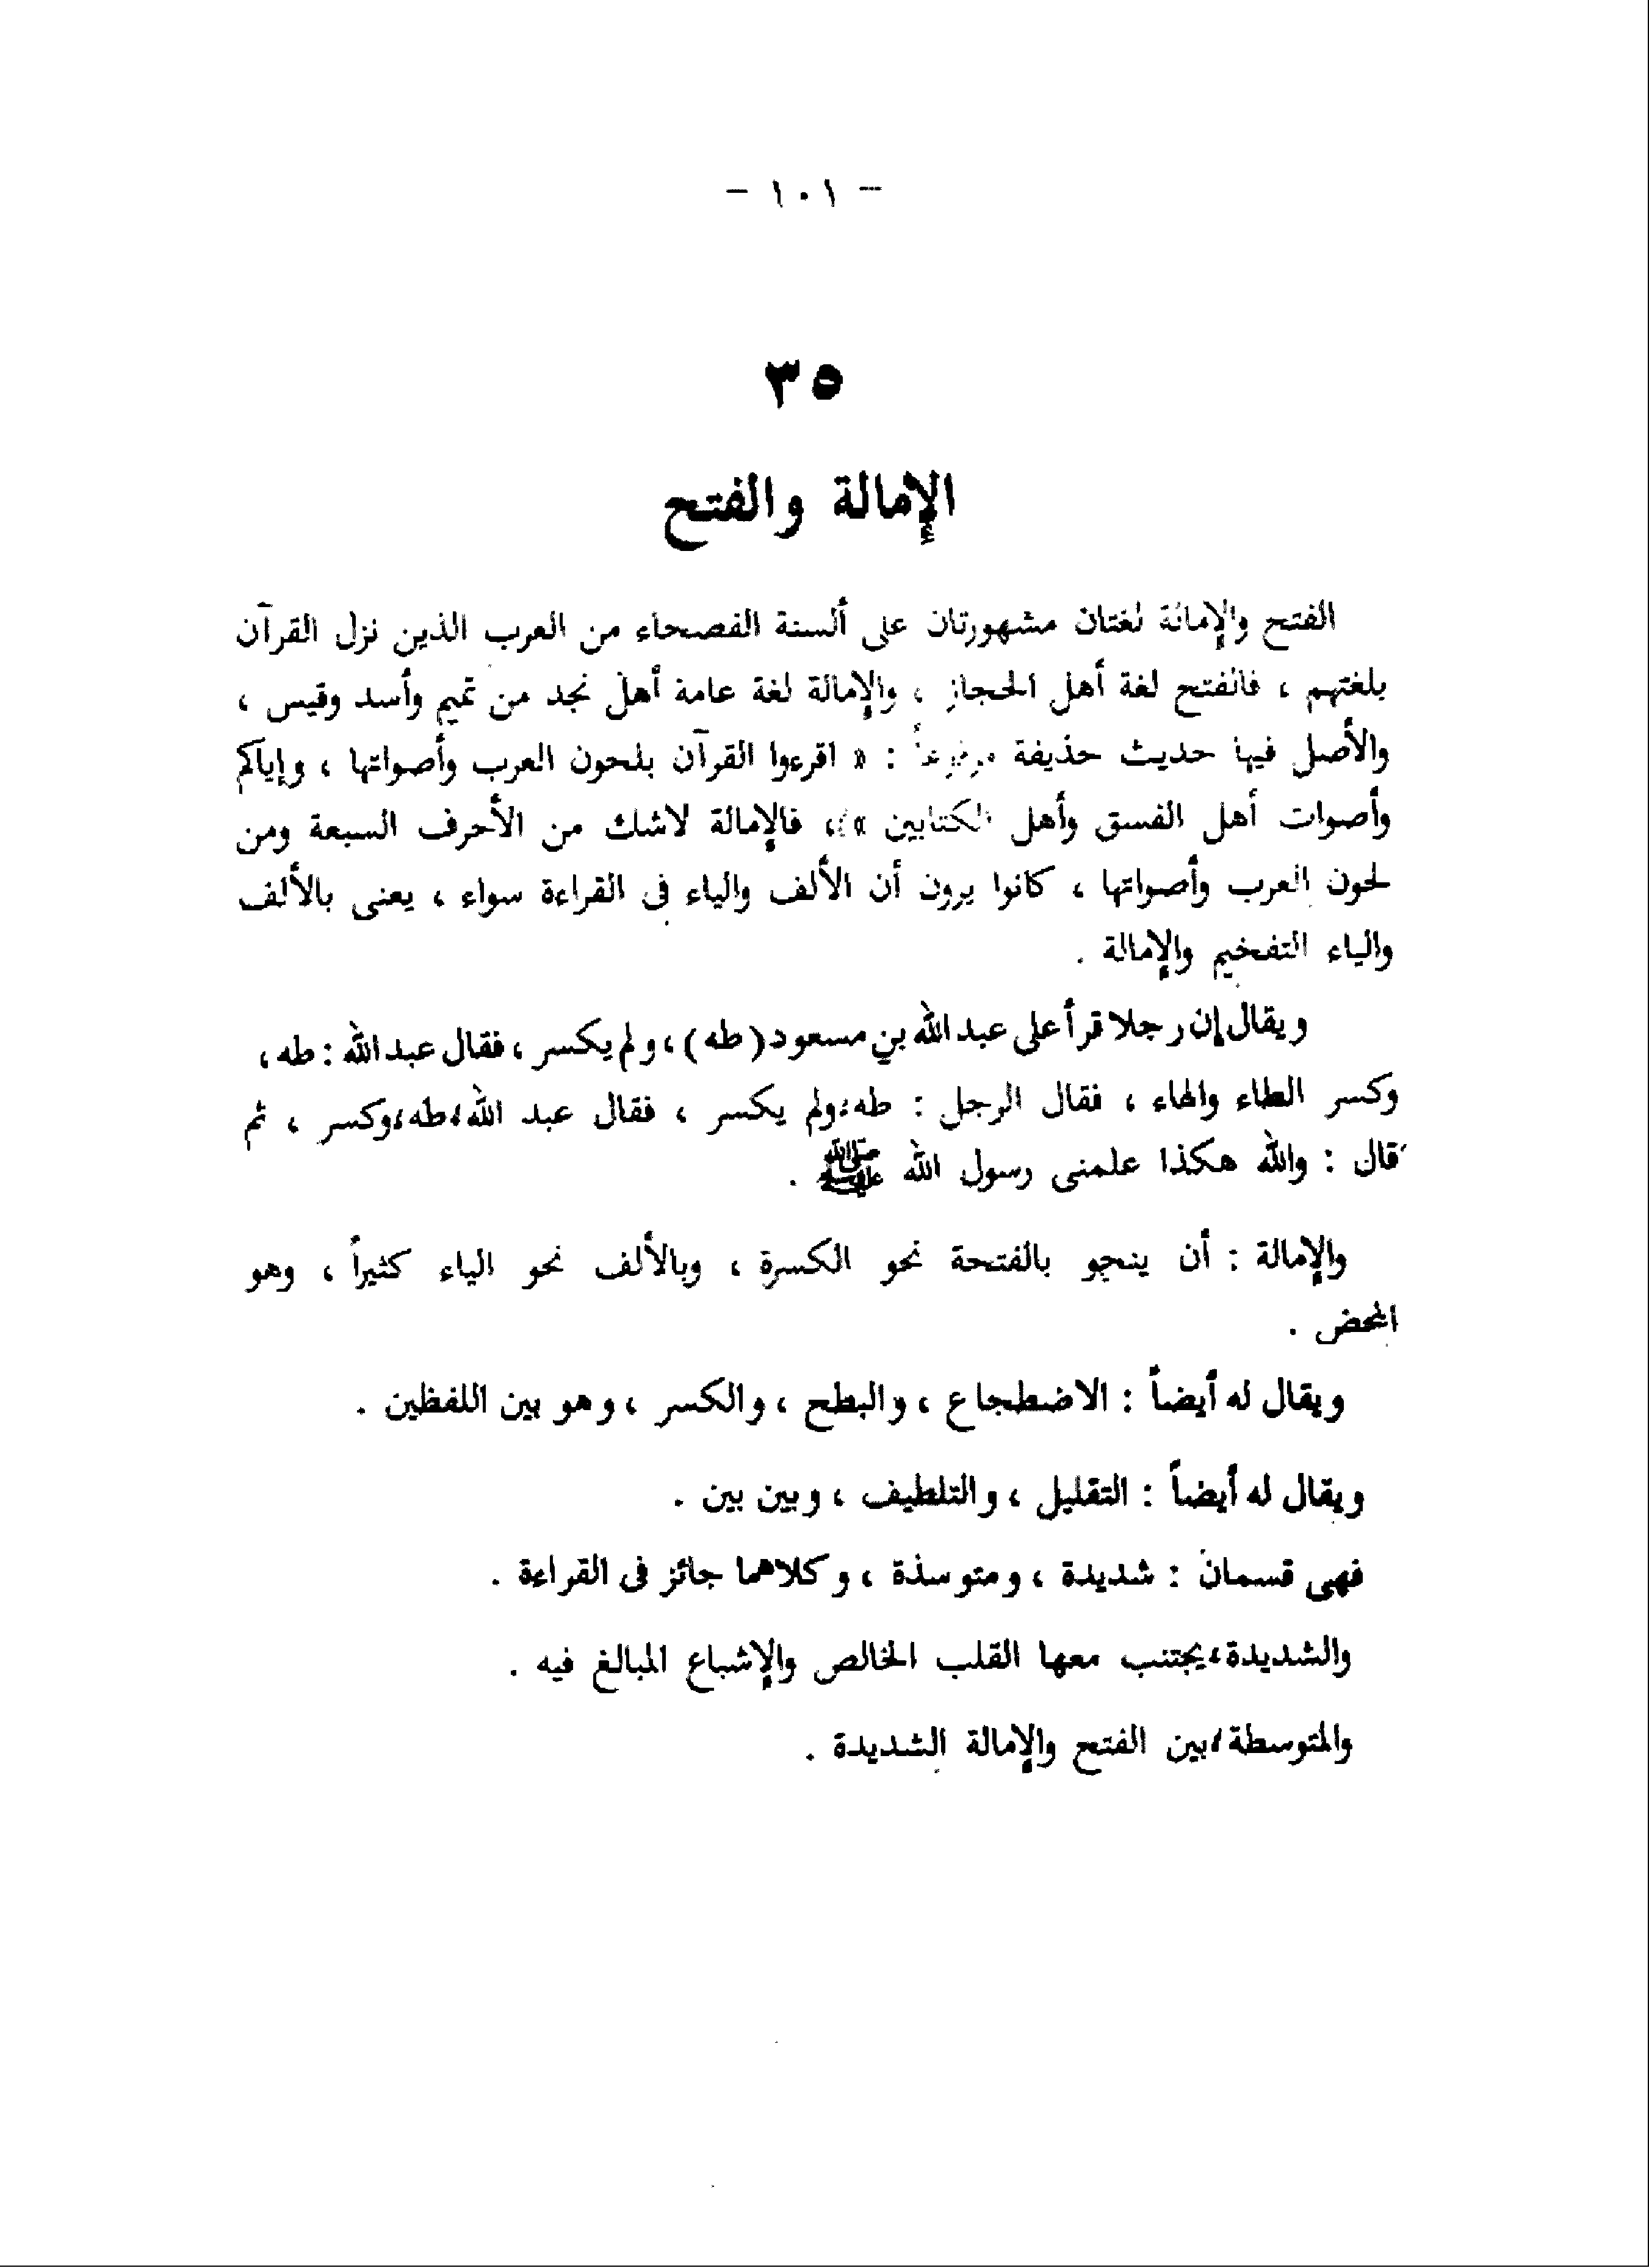 - ١٠١ -
٣٥
الإمالة والفتح
الفتح والإمالة لغتان مشهورتان على ألسنة الفصحاء من العرب الذين نزل القرآن
بلغتهم ، فالفتح لغة أهل الحجاز ، والإمالة لغة عامة أهل نجد من تميم وأسد وقيس ،
والأصل فيها حديث حذيفة مرفوعاً : « اقرءوا القرآن بلحون العرب وأصواتها ، وإياكم
وأصوات أهل الفسق وأهل الكتابين » ، فالإمالة لاشك من الأحرف السبعة ومن
لحون العرب وأصواتها ، كانوا يرون أن الألف والياء فى القراءة سواء ، يعنى بالألف
والياء التفخيم والإمالة .
ويقال إن رجلا قرأ على عبد الله بن مسعود (طه) ، ولم يكسر ، فقال عبد الله : طه ،
وكسر الطاء والهاء ، فقال الرجل : طه ، ولم يكسر ، فقال عبد الله ، طه ، وكسر ، ثم
قال : والله هكذا علمنى رسول الله ﷺ .
والإمالة : أن ينحو بالفتحة نحو الكسرة ، وبالألف نحو الياء كثيراً ، وهو
المحض .
ويقال له أيضاً : الاضطجاع ، والبطح ، والكسر ، وهو بين اللفظين .
ويقال له أيضاً : التقليل ، والتلطيف ، وبين بين .
فهى قسمان : شديدة ، ومتوسذة ، وكلاهما جائز فى القراءة .
والشديدة ، يجتنب معها القلب الخالص والإشباع المبالغ فيه .
والمتوسطة ، بين الفتح والإمالة الشديدة .